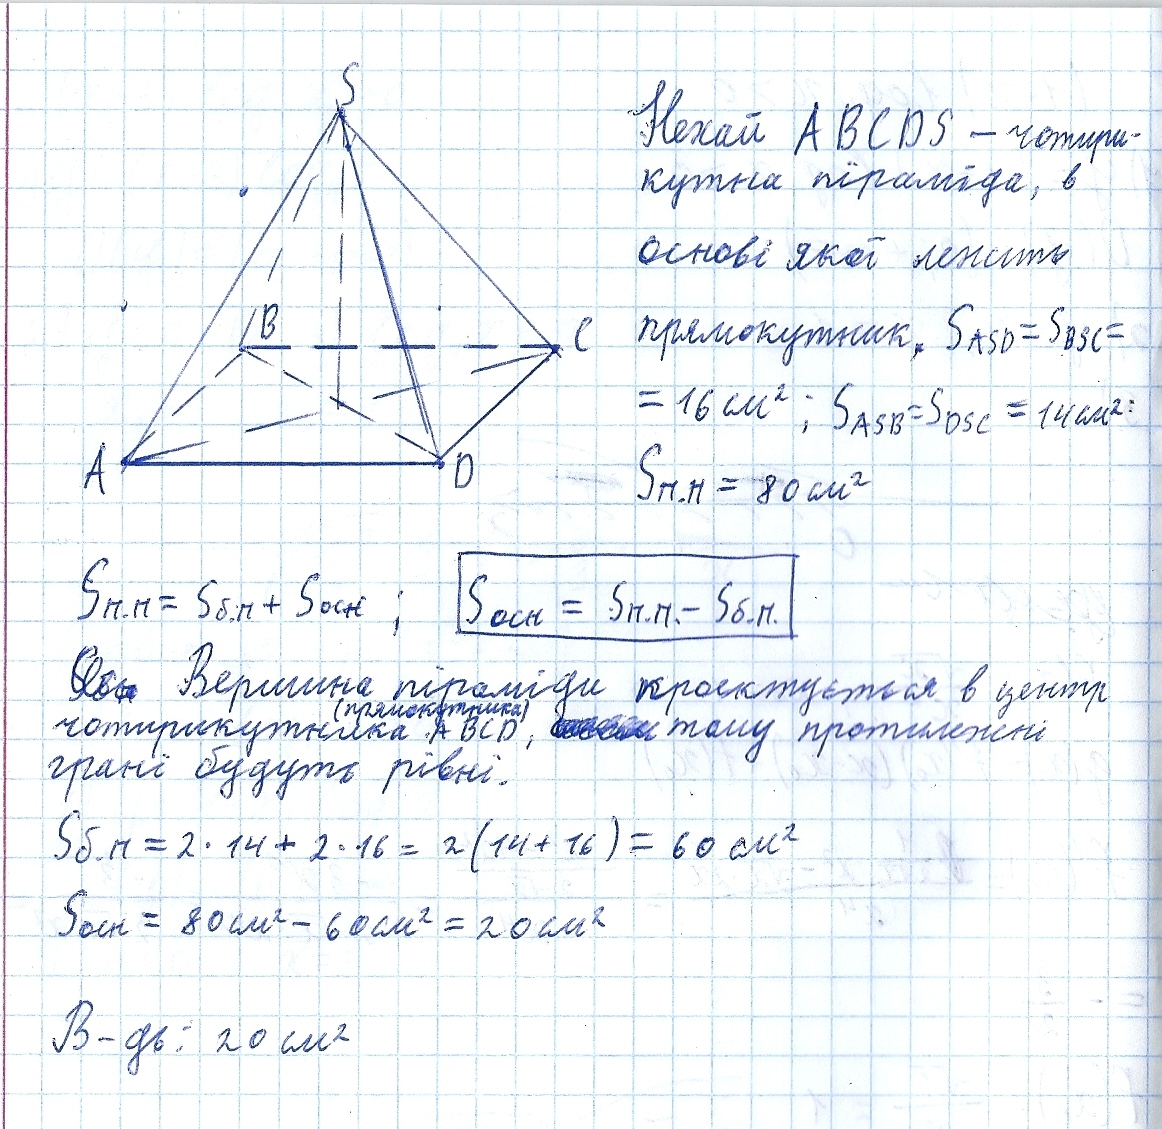 S
B
C
A
D
Нехай ABCDS – чотири-
кутна піраміда, в
основі якої лежить
прямокутник. S_ASD = S_BSC =
= 16 см²; S_ASB = S_DSC = 14 см²;
S_п.п = 80 см²
S_п.п = S_б.п + S_осн ;
S_осн = S_п.п. – S_б.п.
Вершина піраміди проектується в центр
(прямокутника)
чотирикутника ABCD, тому протилежні
грані будуть рівні.
S_б.п = 2·14 + 2·16 = 2(14+16) = 60 см²
S_осн = 80 см² – 60 см² = 20 см²
В-дь: 20 см²